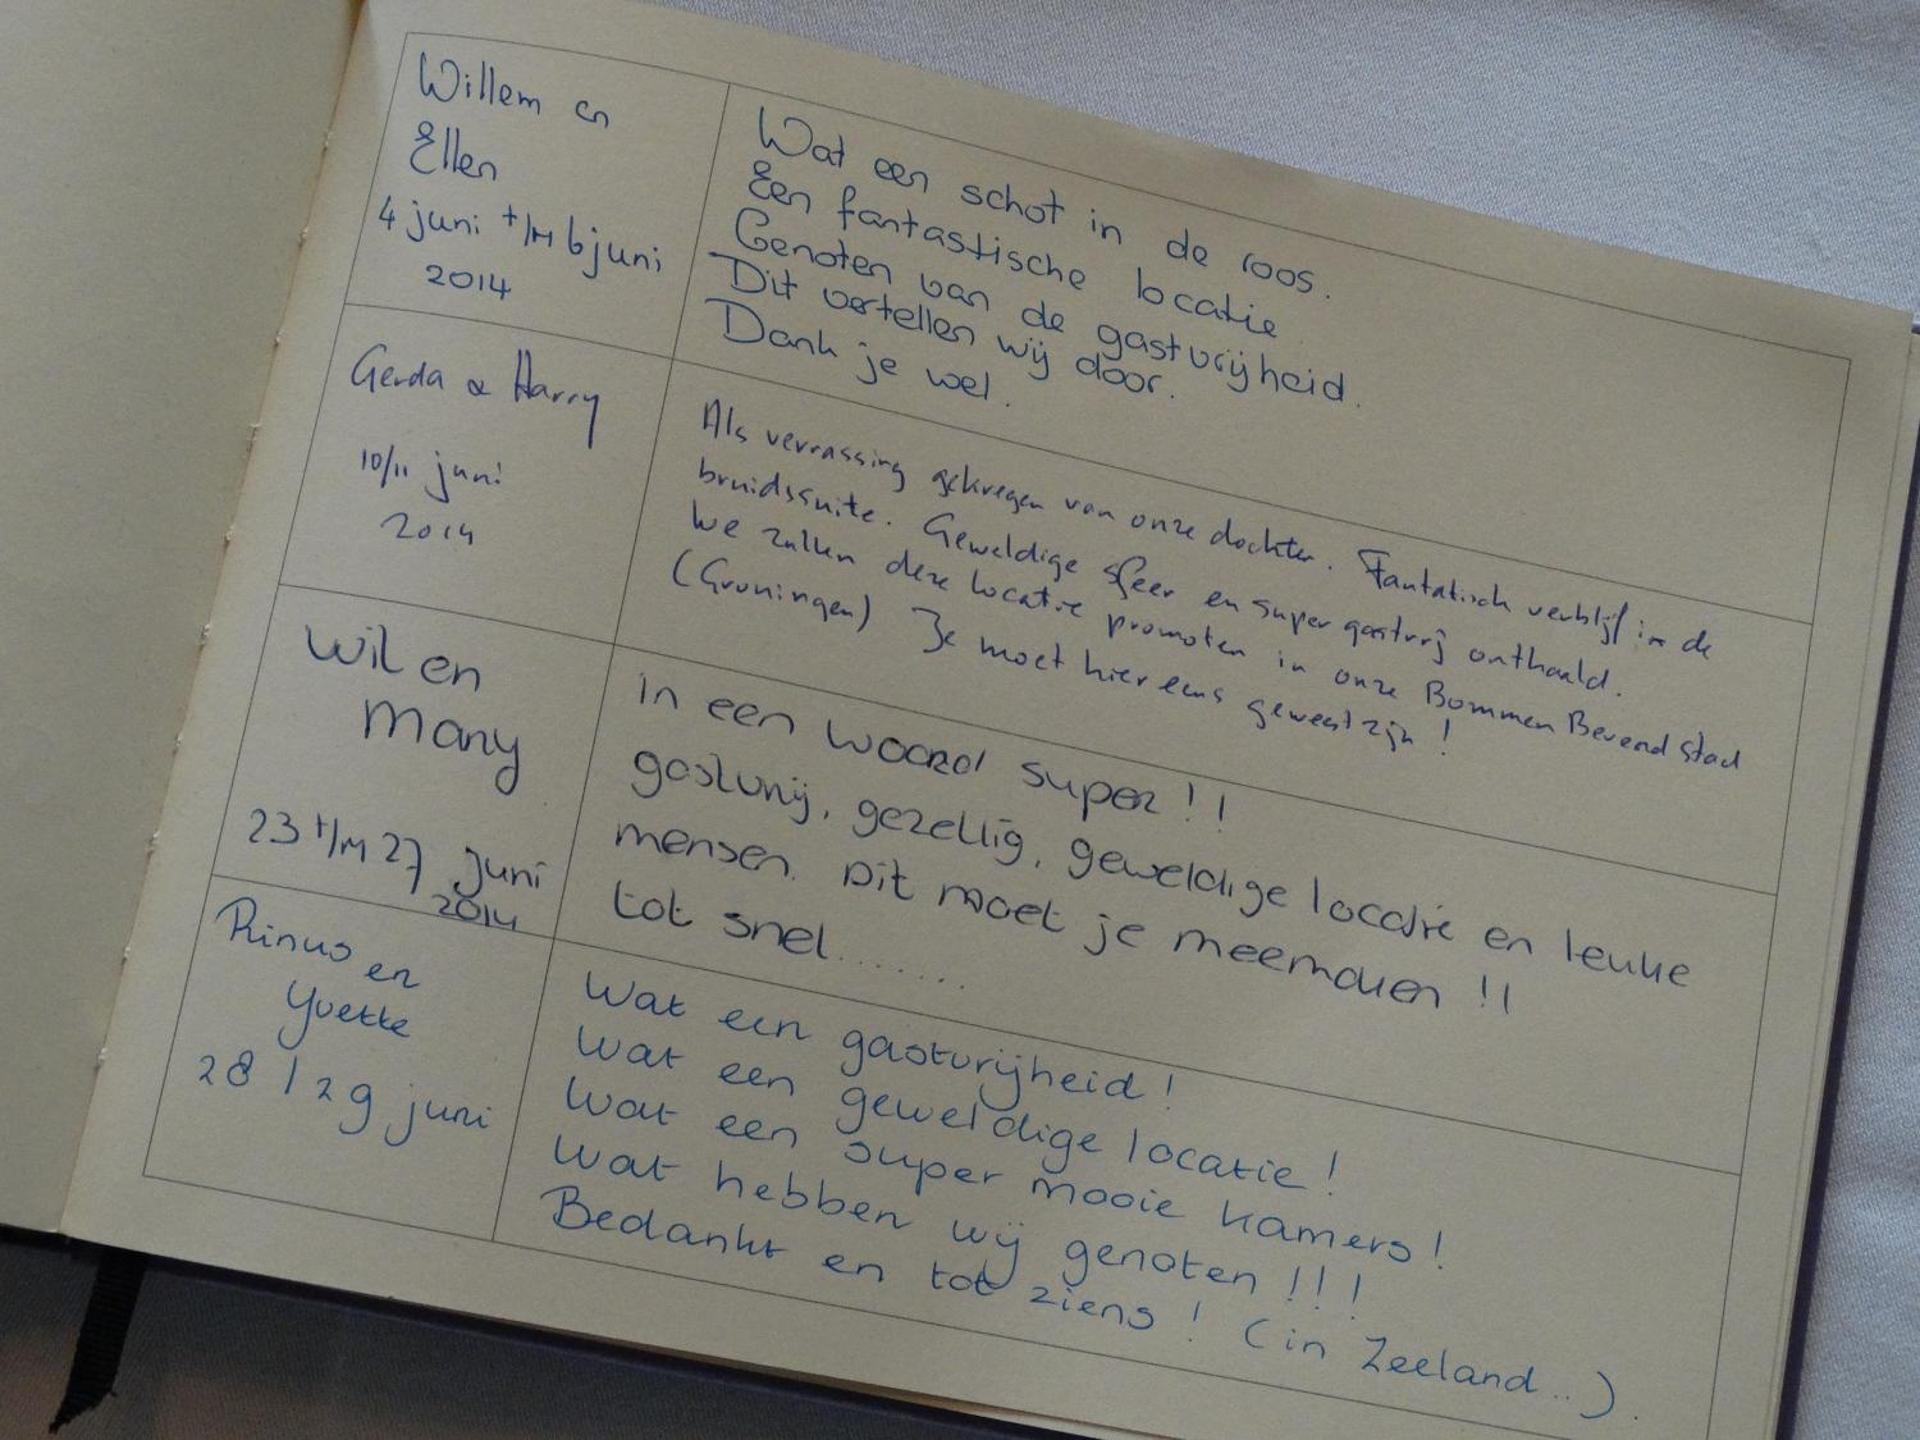 Willem en
Ellen
4 juni t/m 6 juni
2014
Wat een schot in de roos.
Een fantastische locatie
Genoten van de gastvrijheid.
Dit vertellen wij door.
Dank je wel.
Gerda & Harry
10/11 juni
2014
Als verrassing gekregen van onze dochter. Fantatisch verblijf in de
bruidssuite. Geweldige sfeer en super gastvrij onthaald.
We zullen deze locatie promoten in onze Bommen Berend stad
(Groningen) Je moet hier eens geweest zijn!
Wil en
Many
23 t/m 27 juni
2014
in een woord super!!
gastvrij, gezellig, geweldige locatie en leuke
mensen. Dit moet je meemaken!!
tot snel.......
Rinus en
Yvette
28/29 juni
Wat een gastvrijheid!
Wat een geweldige locatie!
Wat een super mooie kamers!
Wat hebben wij genoten!!!
Bedankt en tot ziens! (in Zeeland...).